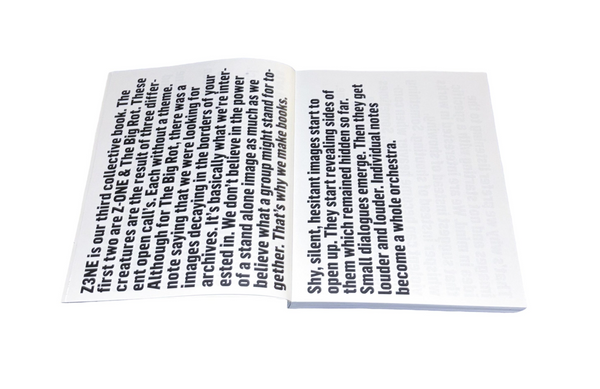 Z3NE is our third collective book. The
first two are Z-ONE & The Big Rot. These
creatures are the result of three differ-
ent open call's. Each without a theme.
Although for The Big Rot, there was a
note saying that we were looking for
images decaying in the borders of your
archives. It's basically what we're inter-
ested in. We don't believe in the power
of a stand alone image as much as we
believe what a group might stand for to-
gether. That's why we make books.
Shy, silent, hesitant images start to
open up. They start revealing sides of
them which remained hidden so far.
Small dialogues emerge. Then they get
louder and louder. Individual notes
become a whole orchestra.